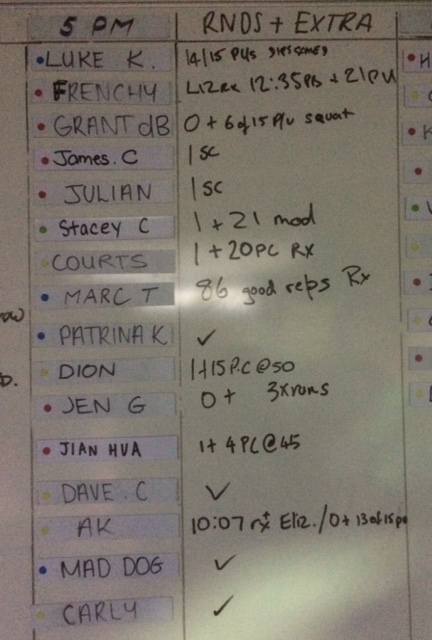 5 PM RNDS + EXTRA
LUKE K. 14/15 PU's
FRENCHY 12:35PB + 21PU
GRANT dB 0 + 6 of 15 P/u squat
James. C 1 SC
JULIAN 1 SC
Stacey C 1 + 21 mod
COURTS 1 + 20PC Rx
MARC T 86 good reps Rx
PATRINA K ✓
DION 1+15 P.C @50
JEN G 0 + 3xruns
JIAN HUA 1+ 4 PC@45
DAVE. C ✓
AK 10:07 rx Eliz. / 0+ 13 of 15 pu
MAD DOG ✓
CARLY ✓